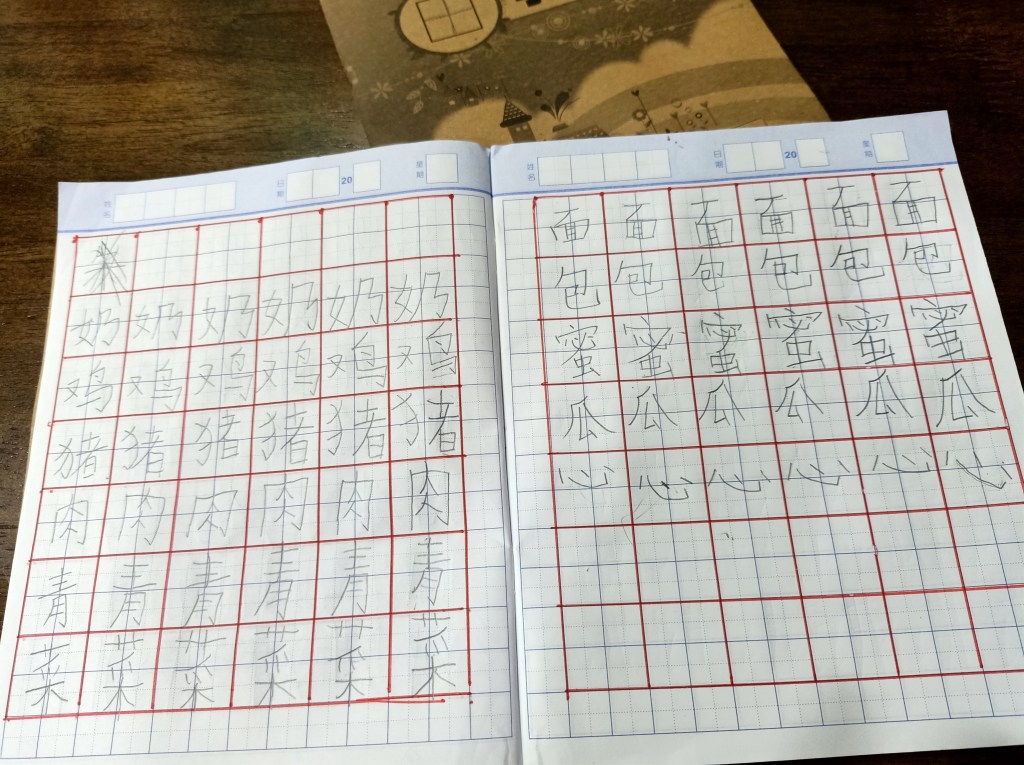 姓名 日期 20 星期
米
奶 奶 奶 奶 奶 奶
鸡 鸡 鸡 鸡 鸡 鸡
猪 猪 猪 猪 猪 猪
肉 肉 肉 肉 肉 肉
青 青 青 青 青 青
菜 菜 菜 菜 菜 菜
姓名 日期 20 星期
面 面 面 面 面 面
包 包 包 包 包 包
蜜 蜜 蜜 蜜 蜜 蜜
瓜 瓜 瓜 瓜 瓜 瓜
心 心 心 心 心 心